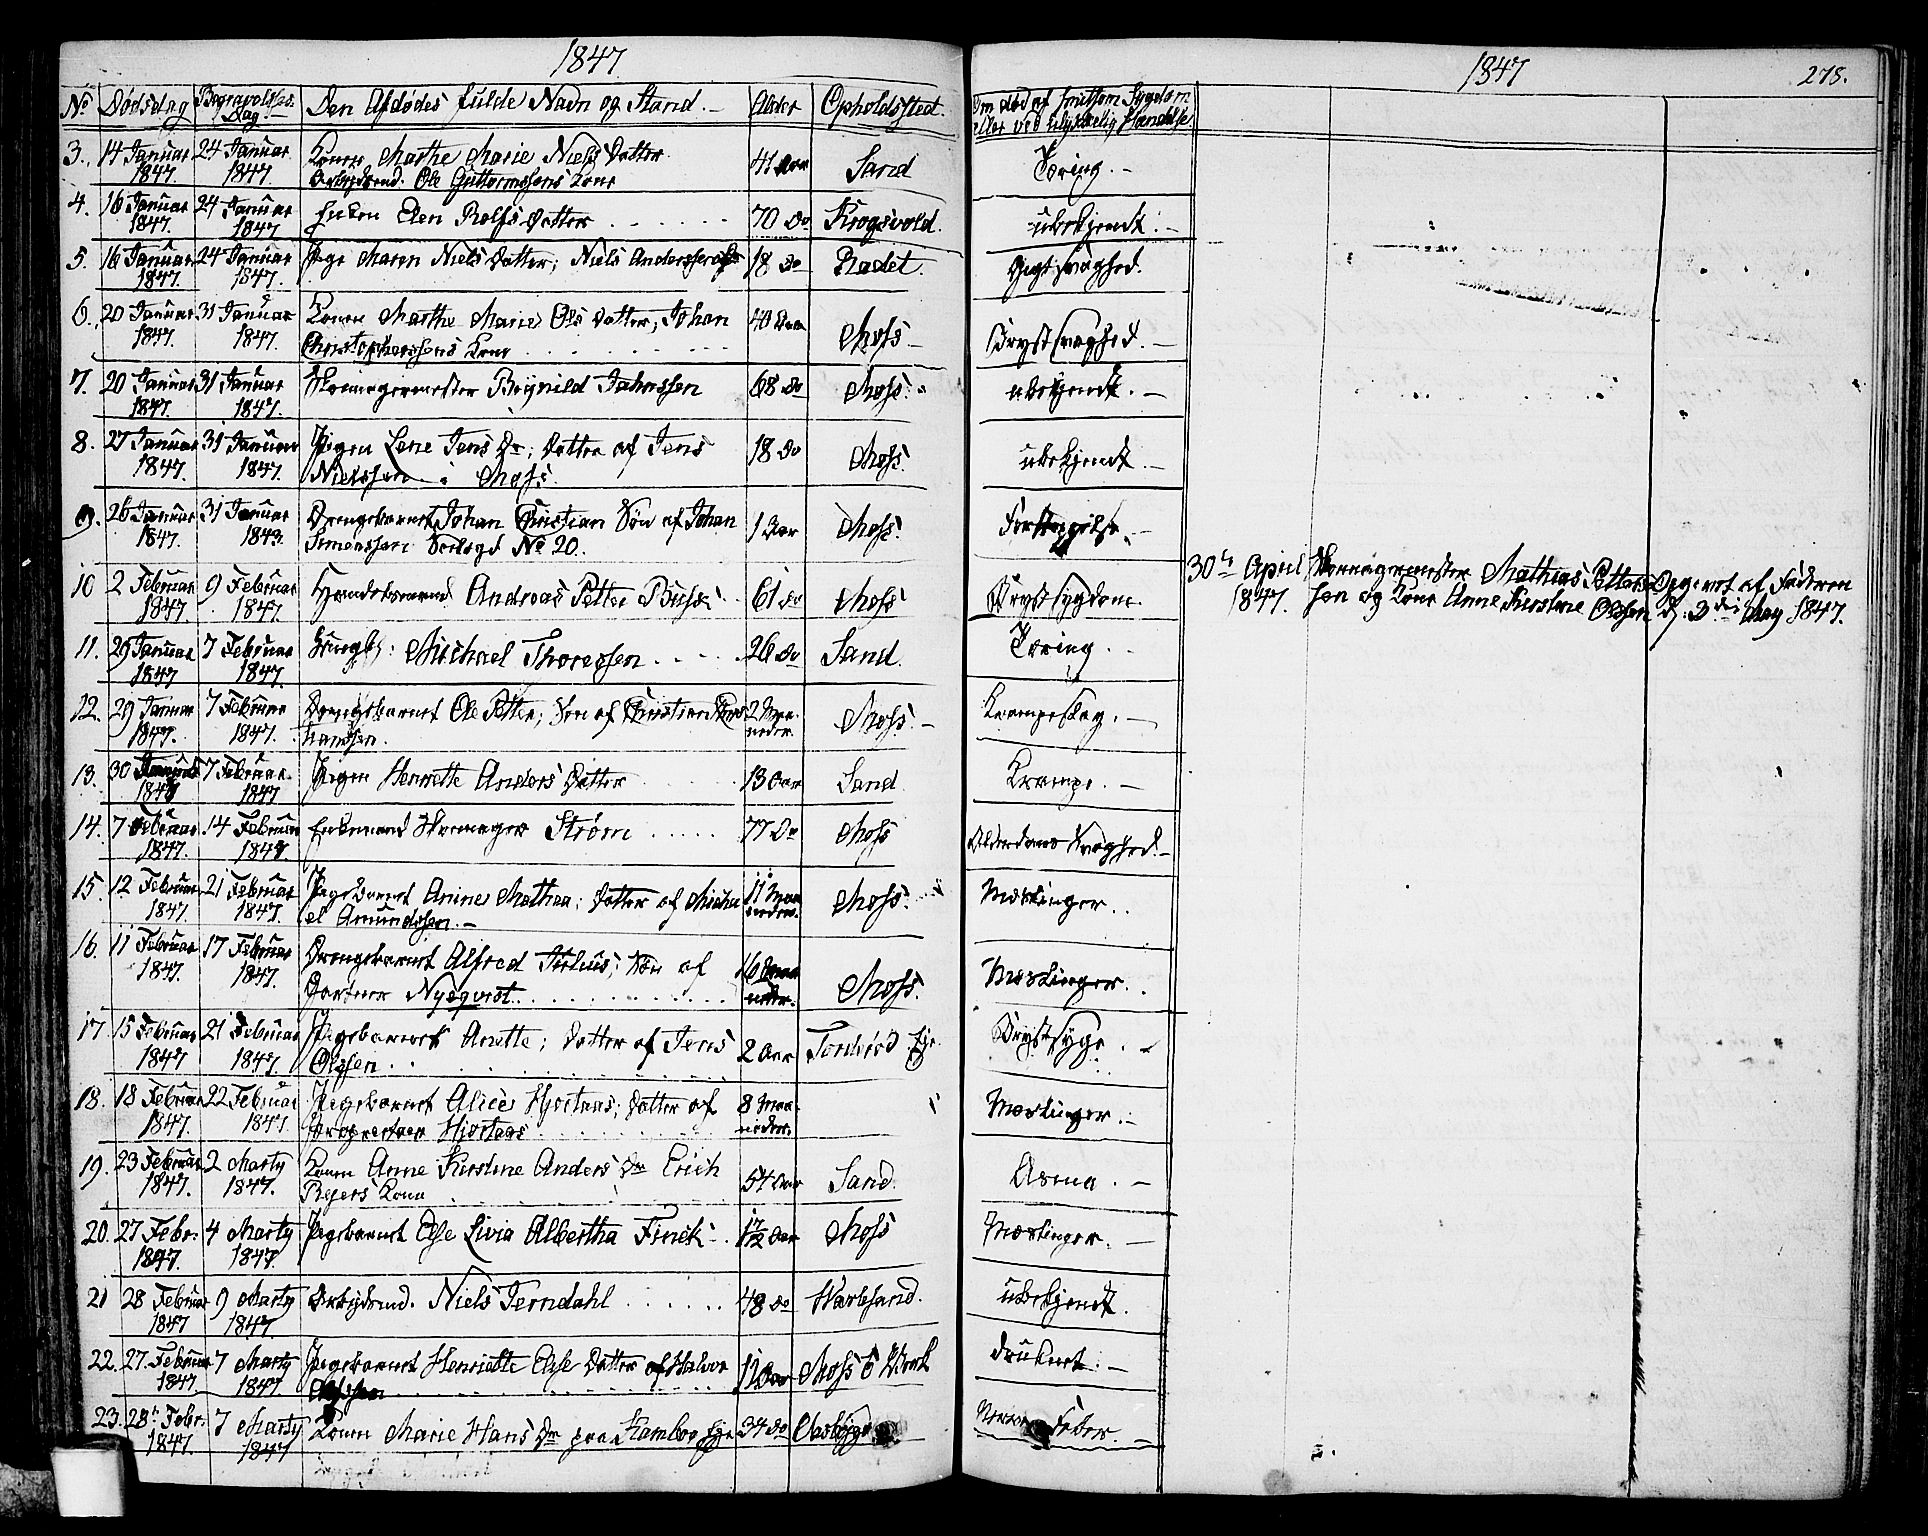 1847
No Dødsdag Begravelses Dag. Den Afdødes fulde Navn og Stand. Alder Opholdssted.
3. 14 Januar 1847. 24 Januar 1847. Konen Marthe Marie Niels Datter 41 Aar Sand
Arbeidsmd. Ole Guttormssens Kone
4. 16 Januar 1847. 24 Januar 1847. Enken Elen Rolfs Datter 70 Do Krogsvold.
5. 16 Januar 1847. 24 Januar 1847. Pige Maren Niels Datter; Niels Anderssens 18 Do Radet.
6. 20 Januar 1847. 31 Januar 1847. Konen Marthe Marie Ols Datter, Johan 40 Aar Moss
Christophersens Kone
7. 20 Januar 1847. 31 Januar 1847. Skomagermester Reynild Johnssen 68 Do Moss.
8. 27 Januar 1847. 31 Januar 1847. Pigen Lene Jens Dr; Datter af Jens 18 Do Moss.
Nielssen i Moss.
9. 26 Januar 1847. 31 Januar 1847. Drengebarnet Johan Christian Søn af Johan 1 Aar Moss.
Simenssen No 20.
10 2 Februar 1847. 9 Februar 1847. Handelsmand Andreas Petter Buss 61 Do Moss
11. 29 Januar 1847 7 Februar 1847. Ungk: Michael Thoressen 26 Do Sand.
12. 29 Januar 1847. 7 Februar 1847. Drengebarnet Ole Petter; Søn af Christian 2 Maaneder Moss.
hanssen.
13. 30 Januar 1847 7 Februar 1847 Pigen Henriette Anders Datter 13 Aar Sand
14. 7 Februar 1847. 14 Februar 1847. Enkemand Skomager Strøm 77 Do Moss
15. 12 Februar 1847. 21 Februar 1847. Pigebarnet Anine Mathea; Datter af Micha 11 Maaneder. Moss.
el Amundssen.
16. 11 Februar 1847. 17 Februar 1847. Drengebarnet Alfred Julius; Søn af 16 Maaneder. Moss.
Gartner Nyeqvist.
17. 15 Februar 1847 21 Februar 1847. Pigebarnet Anette; Datter af Jens 2 Aar
Olssen
18. 18 Februar 1847. 22 Februar 1847. Pigebarnet Alice Hjortaas; Datter af 8 Maaneder.
Proprietær Hjortaas
19. 23 Februar 1847. 2 Marty 1847. Konen Anne Kirstine Anders Dr Erich 54 Aar Sand.
Rejers Kone
20. 27 Febr: 1847. 4 Marty 1847. Pigebarnet Else Livia Albertha Finck 1 7/12 Aar Moss
21 28 Februar 1847 9 Marty 1847. Arbeidsmd. Niels Jerndahl 48 Do Warlesand.
22. 27. Februar 1847 7 Marty 1847. Pigebarnet Henriette Else Datter af Halvor Moss Værk
23. 28 Febr: 1847. 7 Marty 1847 Konen Marie Hans Dr paa Kambo Eje 34 Do
1847 278.
Om død af smitsom Sygdom
eller ved ulykkelig Hændelse.
Tæring.
ubekjendt.
Gigtsvaghed.
Brystsvaghed.
ubekjendt.
ubekjendt.
Forstoppelse.
Brystsygdom.
30te April 1847. Skomagermester Mathias Petters- Opgivet af Faderen
sen og Kone Anne Kirstine Olssen d. 3die May 1847.
Tæring.
Krampeslag.
Krampe.
Alderdoms Svaghed.
Mæslinger.
Mæslinger.
Brystsyge.
Mæslinger.
Asma.
Mæslinger.
ubekjendt.
druknet.
Feber.